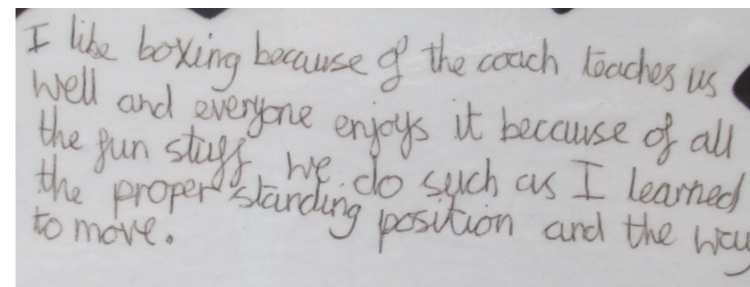 I like boxing because of the coach teaches us
well and everyone enjoys it because of all
the fun stuff we do such as I learned
the proper standing position and the way
to move.